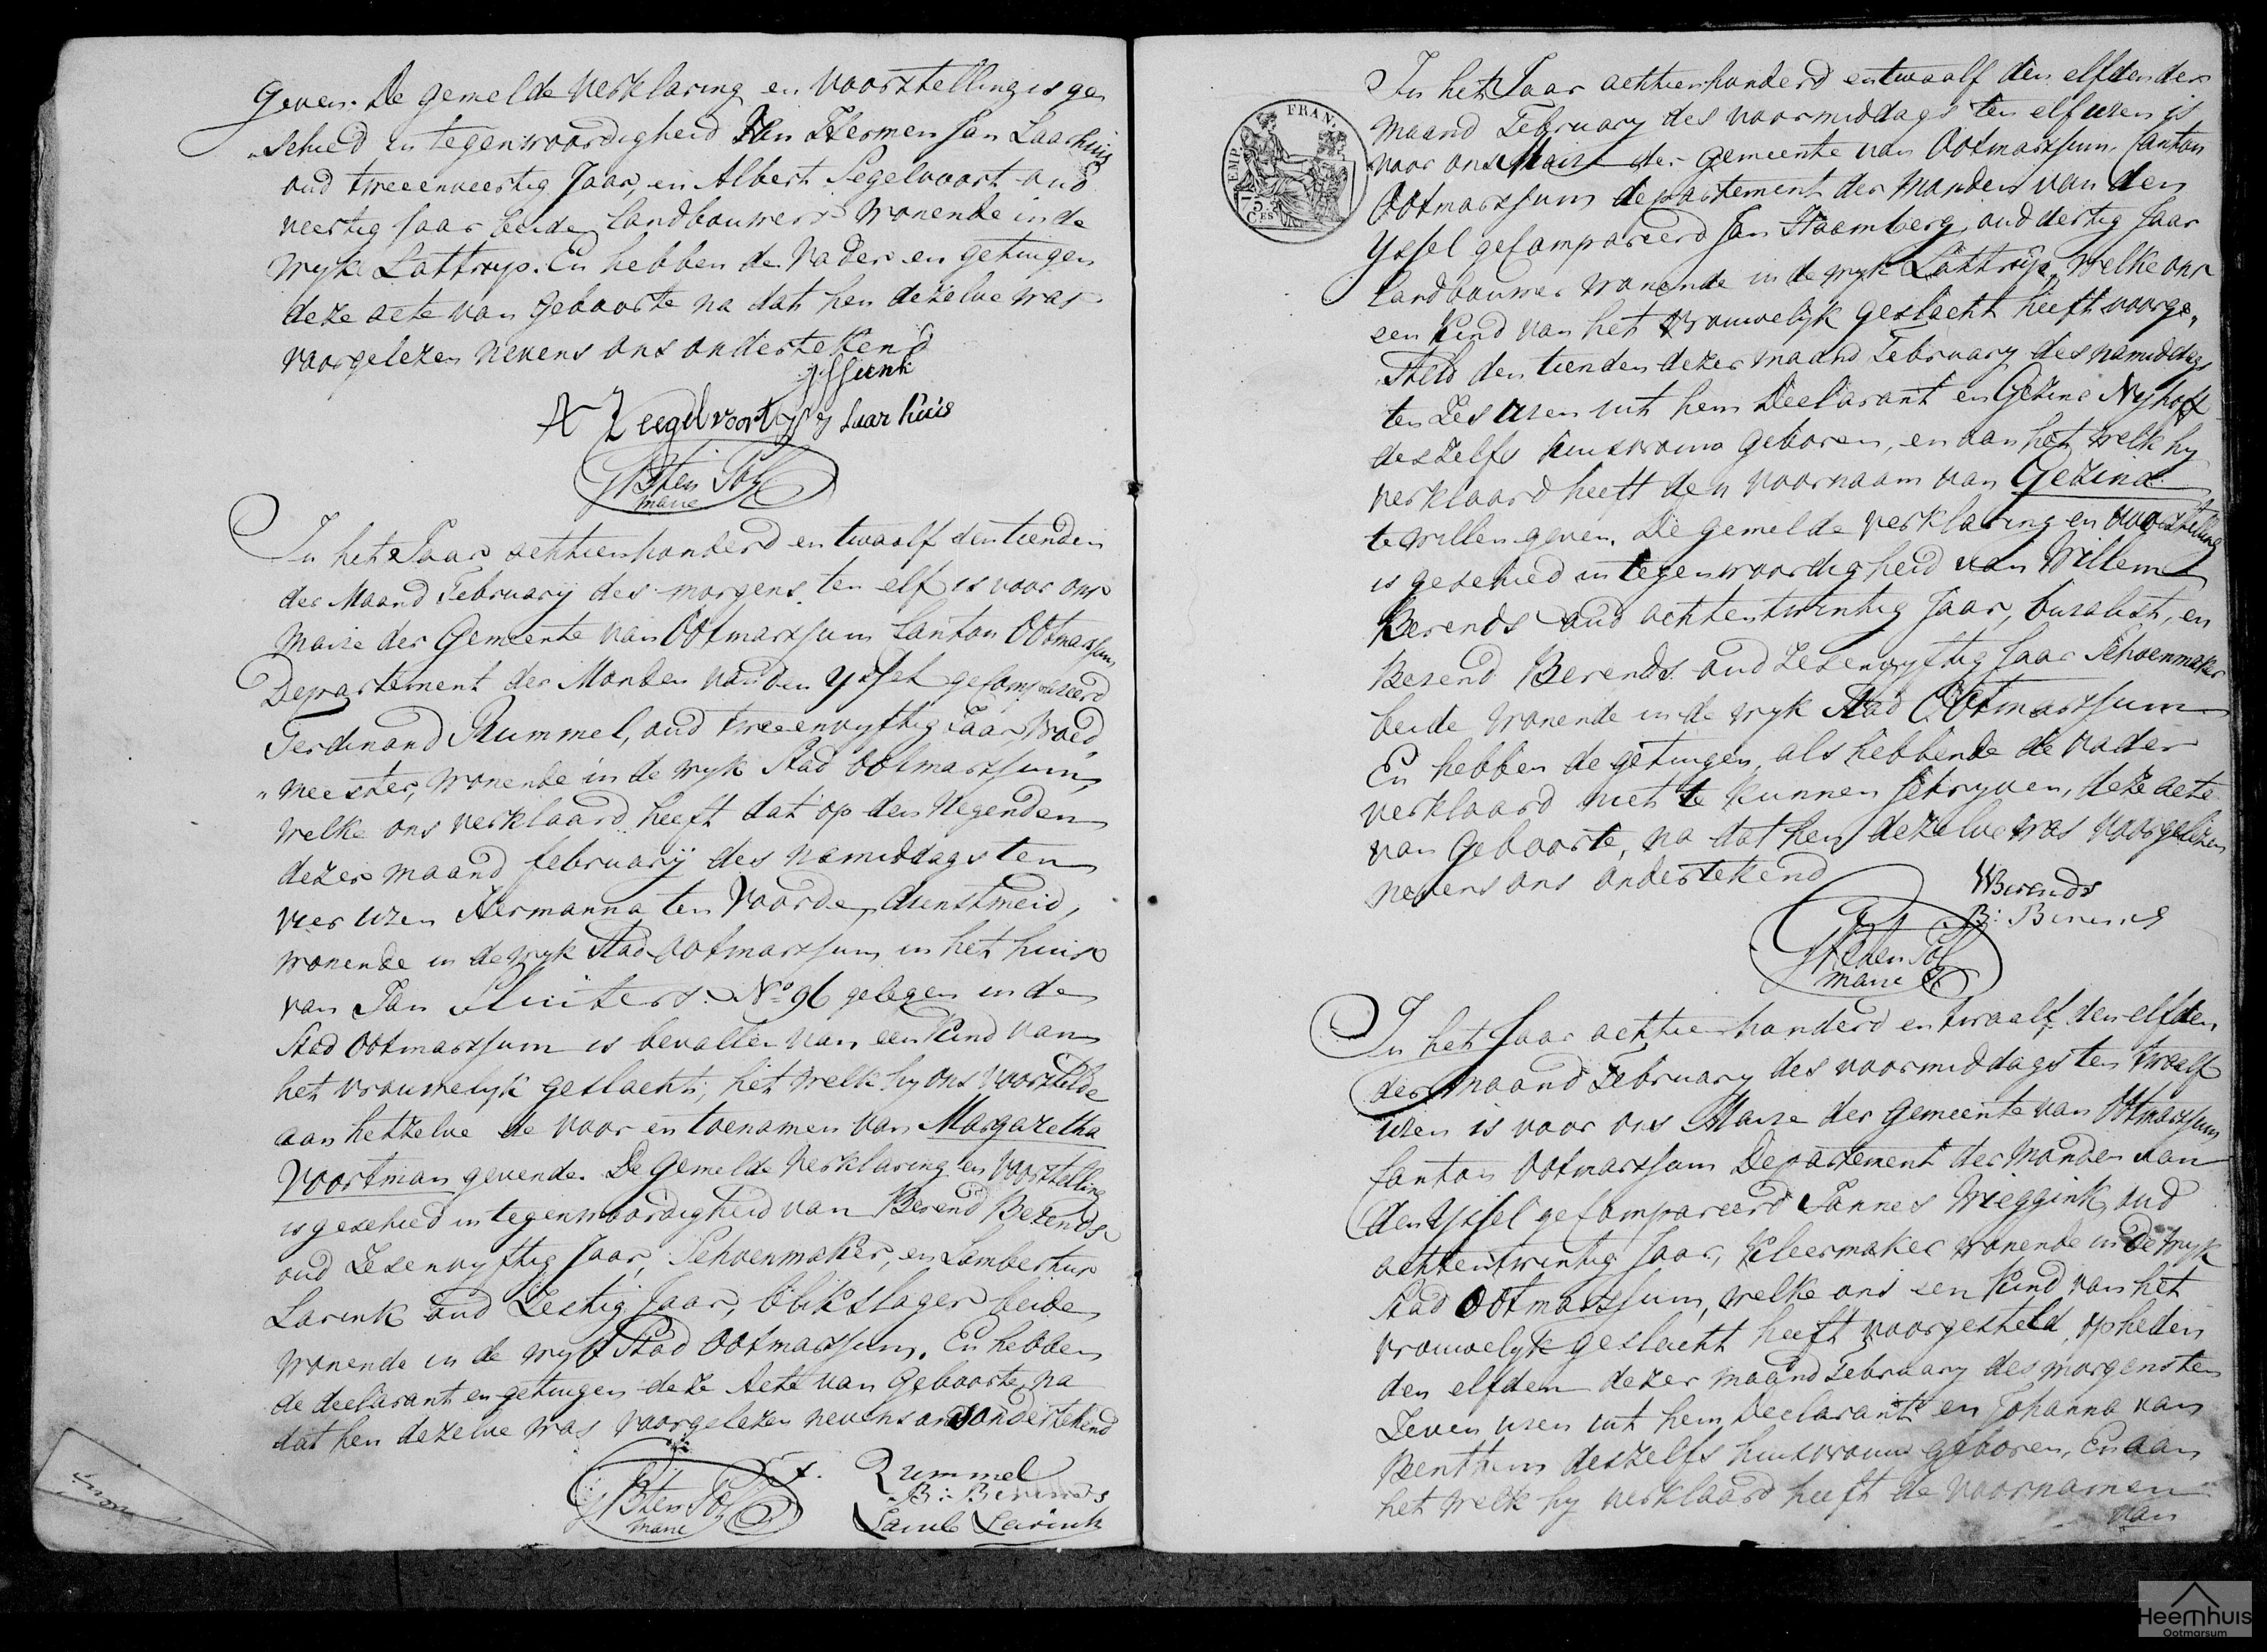 Geven. De gemelde verklaring en voorstelling is ge
"schied in tegenwoordigheid van Hermen Jan Laarhuis
oud tweeenveertig Jaar, en Albert Segelvoort oud
veertig Jaar beide landbouwers wonende in de
wyk Lattrop. En hebben de vader en getuigen
deze acte van geboorte na dat hen dezelve was
voorgelezen nevens ons ondertekend
A Zeegelvoort Laar huis
G B ten Pol
maire
In het Jaar achttienhonderd en twaalf den tienden
der Maand February des morgens ten elf is voor ons
Maire der Gemeente van Ootmarssum Canton Ootmarssum
Departement der Monden van den Yssel gecompareerd
Ferdinand Rummel, oud tweeenvyftig Jaar, Vroed
"meester, wonende in de wyk Stad Ootmarssum,
welke ons verklaard heeft dat op den Negenden
dezer maand february des namiddags ten
vier uren Hermanna ten Voorde, dienstmeid,
wonende in de wyk Stad Ootmarssum in het huis
van Jan Sluiters No 96 gelegen in de
Stad Ootmarssum is bevallen van een kind van
het vrouwelyk geslacht, het welk hy ons voorstelde
aan hetzelve de voor en toenamen van Margaretha
Voortman gevende. De gemelde verklaring en voorstelling
is geschied in tegenwoordigheid van Berend Berends
oud Zesenvyftig Jaar, Schoenmaker, en Lambertus
Larink oud Zestig Jaar, blikslager beide
wonende in de wyk Stad Ootmarssum. En hebben
de declarant en getuigen deze Acte van Geboorte, na
dat hen dezelve was voorgelezen nevens ons ondertekend
F. Rummel
B: Berends
G B ten Pol
maire
Lamb Larink
EMP. FRAN.
75 CES
In het Jaar achttienhonderd en twaalf den elfden der
maand February des voormiddags ten elf uren is
voor ons Maire der gemeente van Ootmarssum, Canton
Ootmarssum departement der Monden van den
Yssel gecompareerd Jan Haamberg, oud dertig Jaar
landbouwer wonende in de wyk Lattrop, welke ons
een kind van het vrouwelyk geslacht heeft voorge„
steld den tienden dezer maand February des namiddags
ten Zes uren uit hem Declarant en Gezina Nyhoff
deszelfs huisvrouw geboren, en aan het welk hy
verklaard heeft den voornaam van Gezina
te willen geven. De gemelde verklaring en voorstelling
is geschied in tegenwoordigheid van Willem
Berends oud achtentwintig Jaar, buralist, en
Berend Berends oud Zesenvyftig Jaar Schoenmaker
beide wonende in de wyk Stad Ootmarssum
En hebben de getuigen, als hebbende de vader
verklaard niet te kunnen schryven, deze acte
van Geboorte, na dat hen dezelve was voorgelezen
nevens ons ondertekend
WBerends
B: Berends
G B ten Pol
maire
In het Jaar achttienhonderd en twaalf den elfden
der maand February des voormiddags ten twaalf
uren is voor ons Maire der Gemeente van Ootmarssum
Canton Ootmarssum Departement der Monden van
den Yssel gecompareerd Jannes Wieggink, oud
achtentwintig Jaar, Kleermaker wonende in de wyk
Stad Ootmarssum, welke ons een kind van het
vrouwelyk geslacht heeft voorgesteld, op heden
den elfden dezer maand February des morgens ten
Zeven uren uit hem Declarant en Johanna van
Benthem deszelfs huisvrouw geboren, En aan
het welk hy verklaard heeft de voornamen
van
Heemhuis
Ootmarsum